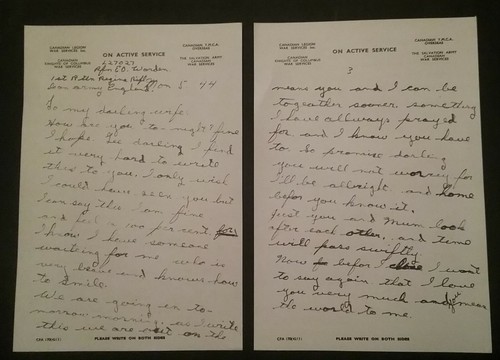 CANADIAN LEGION
WAR SERVICES, Inc.
CANADIAN
KNIGHTS OF COLUMBUS
WAR SERVICES
ON ACTIVE SERVICE
CANADIAN Y.M.C.A.
OVERSEAS
THE SALVATION ARMY
CANADIAN
WAR SERVICES
L27027
Worden
1st Regina Rifles
Can army England Mon 5 44
To my darling wife.
How are you to-night? fine
I hope. darling I find
it very hard to write
this to you. I only wish
I could have seen you but
I can say this I am fine
and feel a 100 per cent for
I know I have someone
waiting for me who is
very brave and knows how
to smile.
We are going in to-
morrow morning, as I write
this we are out on the
PLEASE WRITE ON BOTH SIDES
CANADIAN LEGION
WAR SERVICES, Inc.
CANADIAN
KNIGHTS OF COLUMBUS
WAR SERVICES
ON ACTIVE SERVICE
CANADIAN Y.M.C.A.
OVERSEAS
THE SALVATION ARMY
CANADIAN
WAR SERVICES
3
means you and I can be
togeather sooner, something
I have allways prayed
for and I know you have
to. So promise darling
you will not worry for
I'll be allright and home
befor you know it.
Just you and Mum look
after each other, and time
will pass swiftly.
Now befor I close I want
to say again that I love
you very much and you mean
the world to me.
PLEASE WRITE ON BOTH SIDES